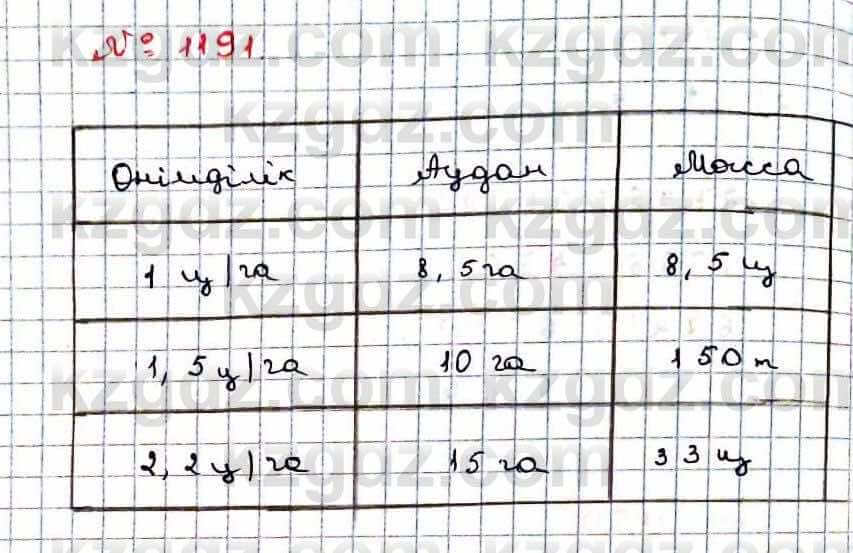 № 1191.
Өнімділік Аудан Масса
1 ц/га 8,5 га 8,5 ц
1,5 ц/га 10 га 150 т
2,2 ц/га 15 га 33 ц
kzgdz.com